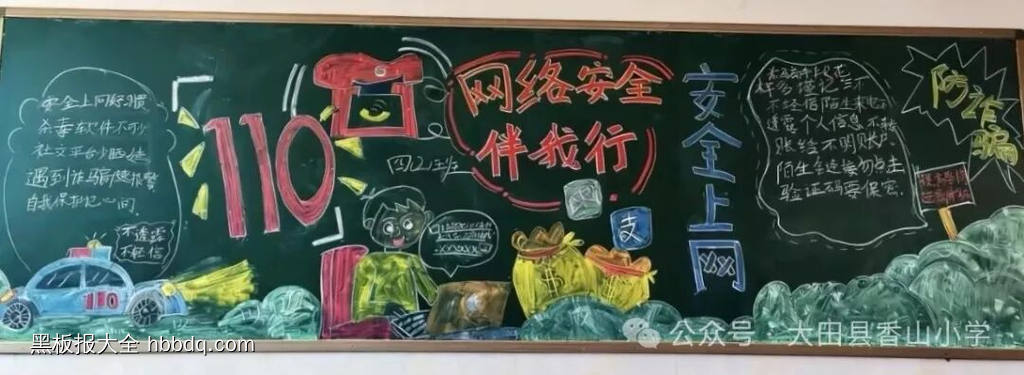 安全上网好习惯
杀毒软件不可少
社交平台少晒娃
遇到诈骗快报警
自我保护记心间
不透露
不轻信
110
110
网络安全
伴我行
四(2)班
支
安全上网
多懂记三不
不轻信陌生来电不
透露个人信息不转
账给不明账户
陌生链接勿点击
验证码要保密
防诈骗
黑板报大全 hbbdq.com
公众号 · 大田县香山小学